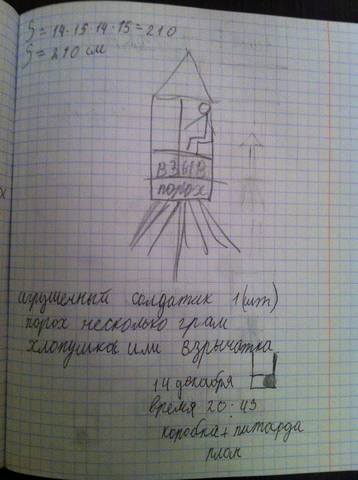 S = 14 · 15 · 14 · 15 = 210
S = 210 см
ВЗЫВ
ПОРОХ
игрушенный солдатик 1 (шт)
порох несколько грам
хлопушка или взрычатка
14 декабря
время 20:45
коробка + питарда
план